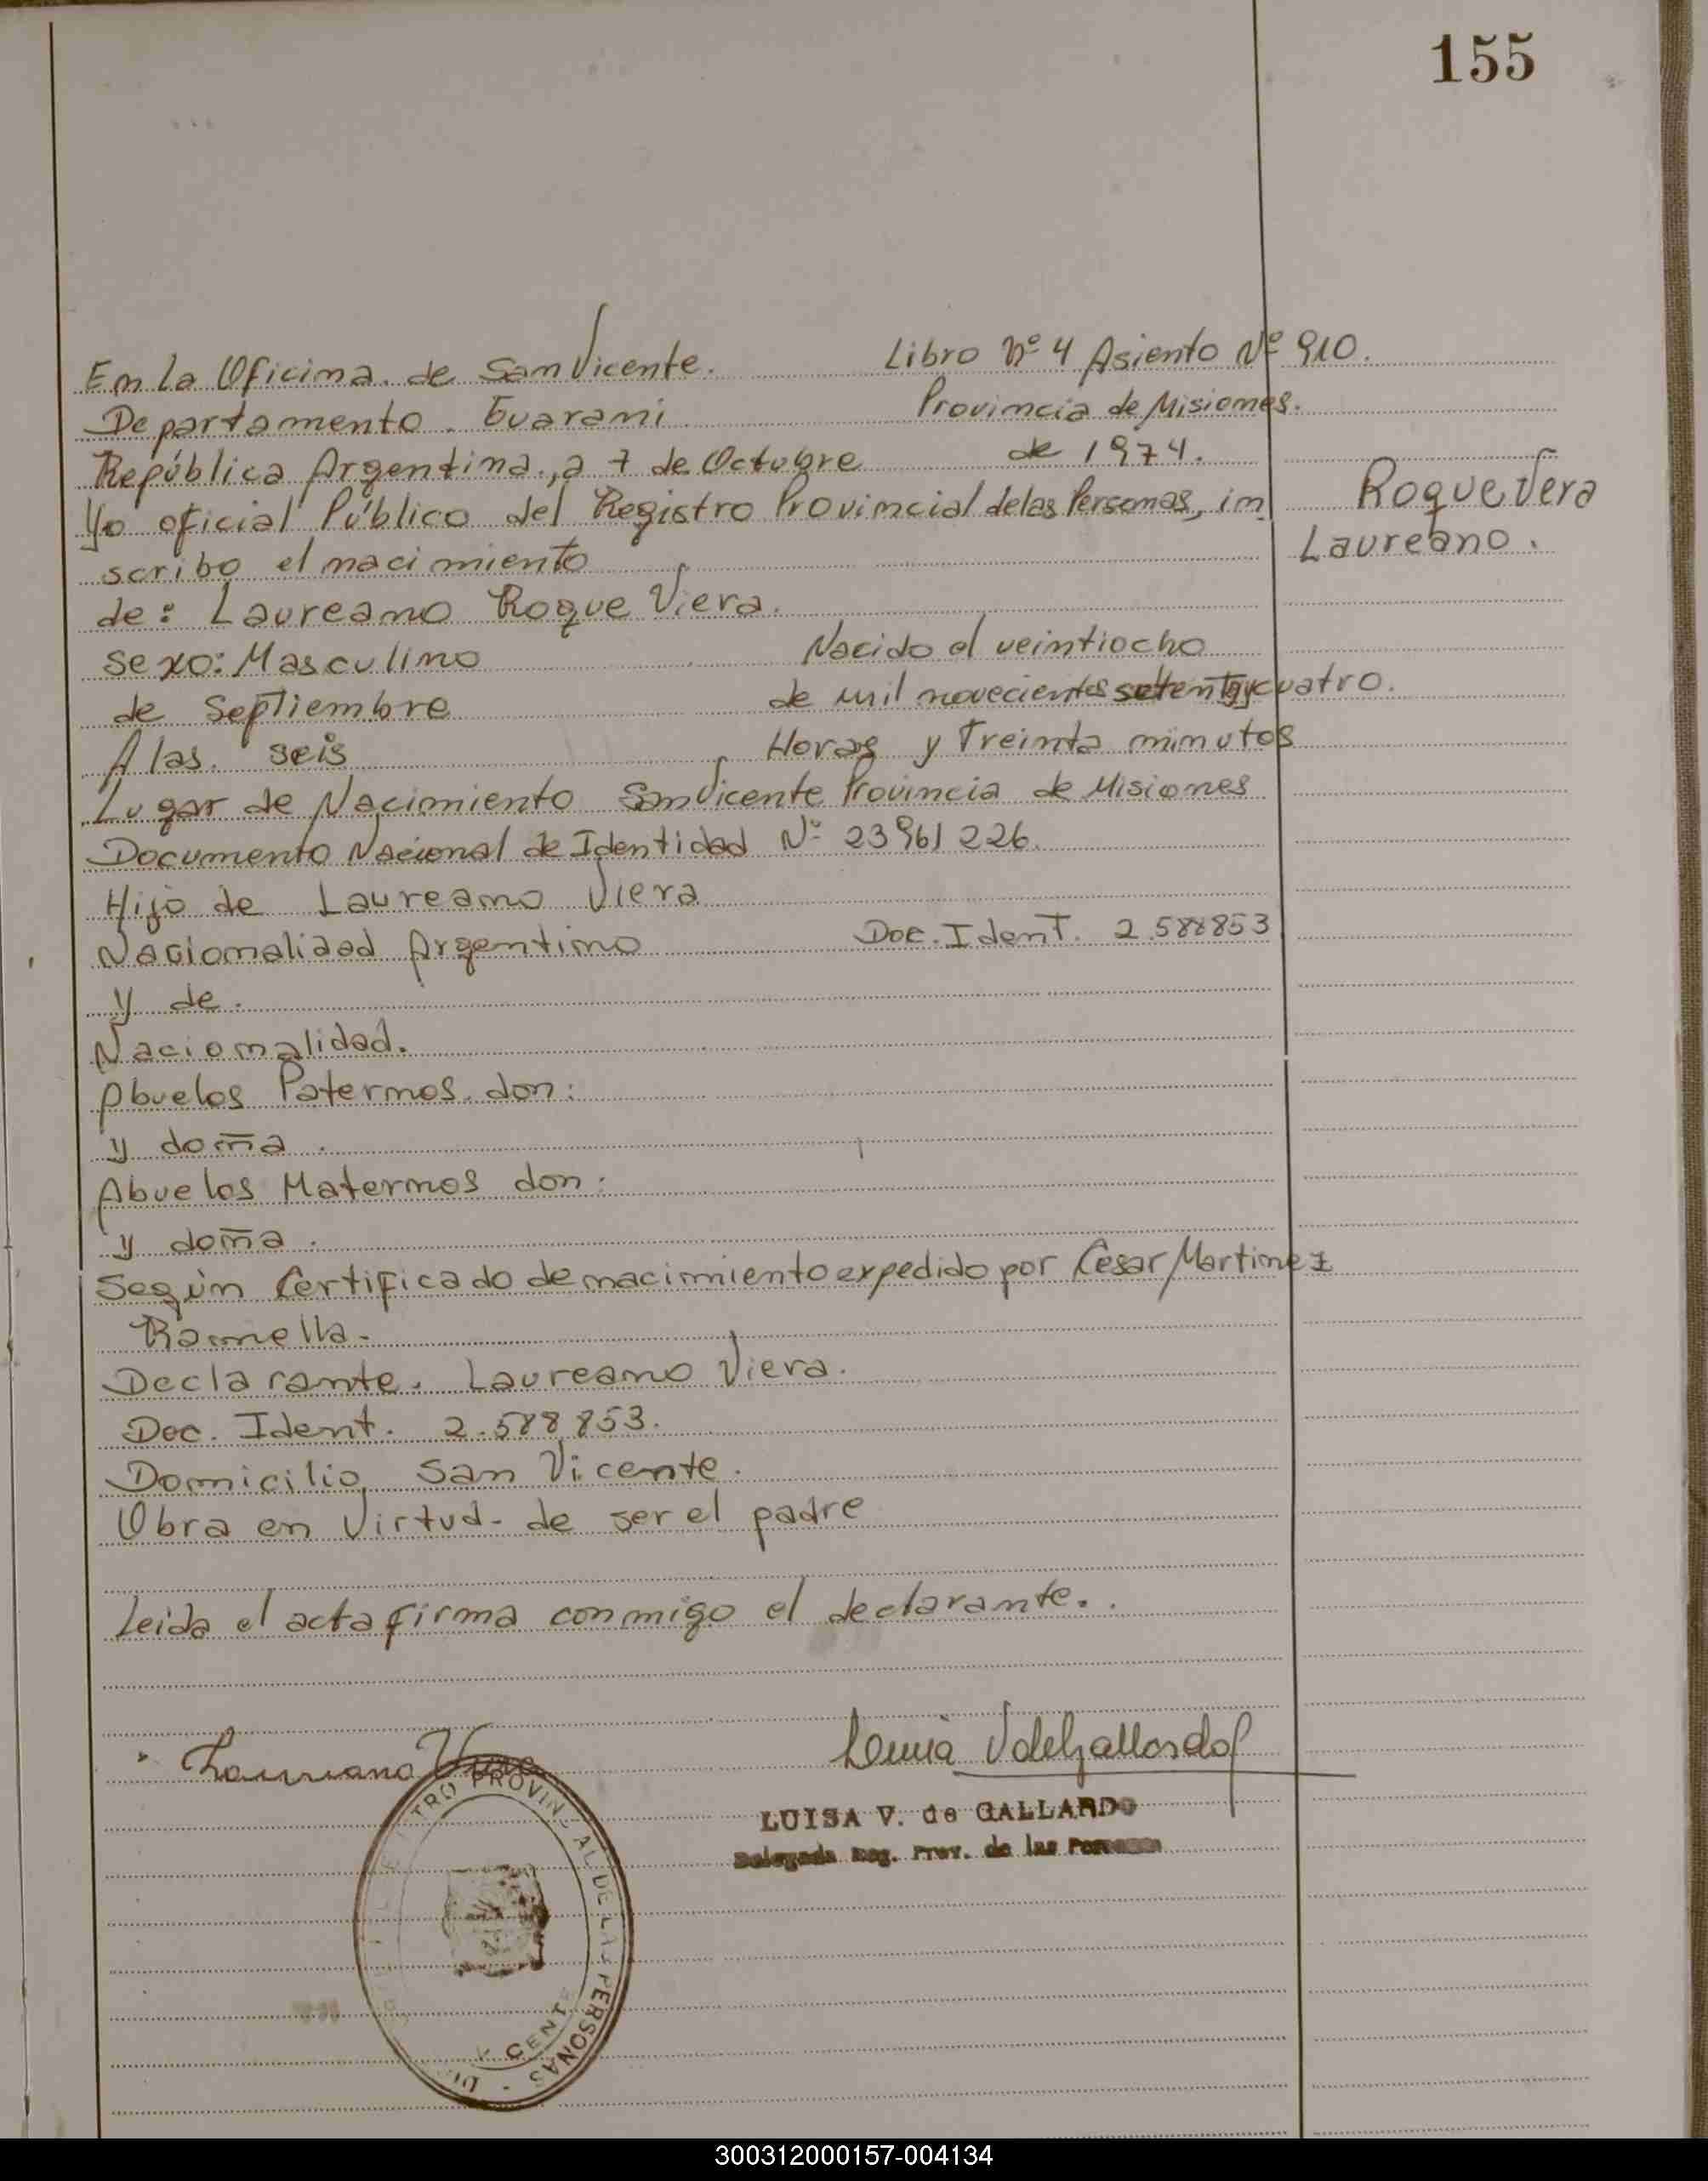 155
En la Oficina. de San Vicente. Libro Nº 4 Asiento Nº 910.
Departamento. Guarani Provincia de Misiones.
República Argentina, a 7 de Octubre de 1974.
Yo oficial Público del Registro Provincial de las Personas, in
scribo el nacimiento
Roque Vera
Laureano.
de: Laureano Roque Viera.
sexo: Masculino Nacido el veintiocho
de Septiembre de mil novecientos setentaycuatro.
A las. seis Horas y Treinta minutos
Lugar de Nacimiento San Vicente Provincia de Misiones
Documento Nacional de Identidad Nº 23961226.
Hijo de Laureano Viera
Nacionalidad Argentino Doc. Ident. 2.588853
y de.
Nacionalidad.
Abuelos Paternos. don:
y doña.
Abuelos Maternos don:
y doña.
Según Certificado de nacimiento expedido por Cesar Martinez
Ramella.
Declarante. Laureano Viera.
Doc. Ident. 2.588.853.
Domicilio San Vicente.
Obra en Virtud- de ser el padre
Leida el acta firma conmigo el declarante..
Laureano Viera
LUISA V. de GALLARDO
Delegada Reg. Prov. de las Personas
PROVIN AL DE LAS PERSONAS
300312000157-004134